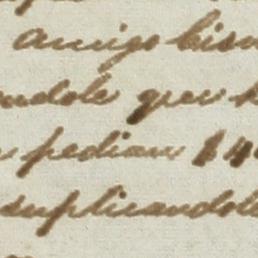 amigo bien
ndole que
pedian $ 4
suplicandole